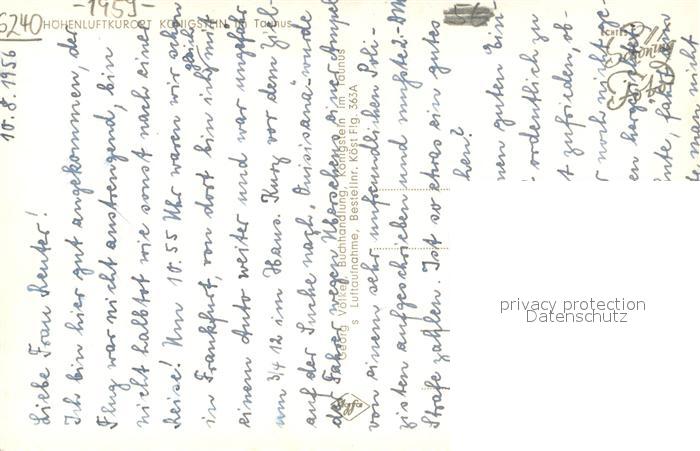 6240
-1959-
56
HÖHENLUFTKURORT KÖNIGSTEIN im Taunus
ECHTES
Georg Völker, Buchhandlung, Königstein im Taunus
s Luftaufnahme, Bestellnr. Köst Flg. 363A
Agfa
10.8.1956
Liebe Frau Reuter!
Ich bin hier gut angekommen, der
Flug war nicht anstrengend, bin
nicht halbtot wie sonst nach einer
Reise! Um 10.55 Uhr waren wir schon
in Frankfurt, von dort bin ich gleich im
einem Auto weiter und war ungefähr
um 3/4 12 im Haus. Kurz vor dem Ziel -
auf der Suche nach "Quisisana" - wurde
der Fahrer wegen Übersehens einer Ampel
von einem sehr unfreundlichen Poli-
zisten aufgeschrieben und mußte 2.- DM
Strafe zahlen. Ist so etwas ein gutes
hen?
nen guten Ein-
ordentlich zu
t zufrieden, ob-
r noch nicht ge-
en
nte, falls im
men mit
privacy protection
Datenschutz